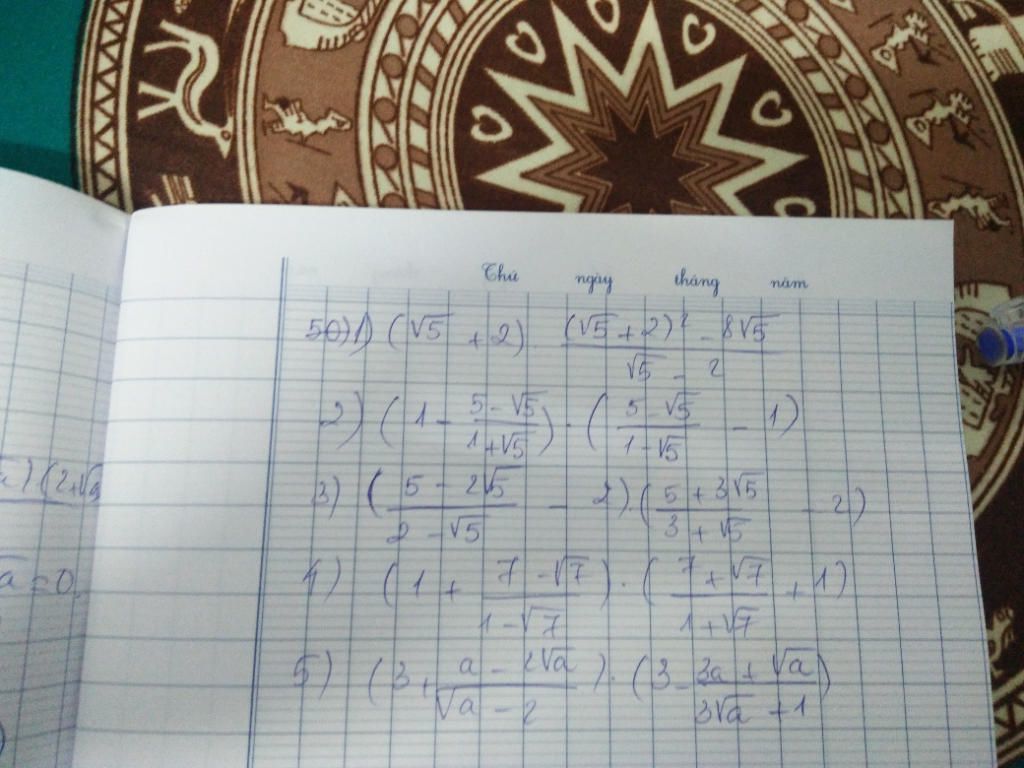 Thứ ngày tháng năm
50) 1) (√5 + 2) . ((√5 + 2)² - 8√5)/(√5 - 2)
2) (1 - (5 - √5)/(1 + √5)) . ((5 - √5)/(1 - √5) - 1)
3) ((5 - 2√5)/(2 - √5) - 2) . ((5 + 3√5)/(3 + √5) - 2)
4) (1 + (7 - √7)/(1 - √7)) . ((7 + √7)/(1 + √7) + 1)
5) (3 + (a - 2√a)/(√a - 2)) . (3 - (3a + √a)/(3√a + 1))
) (2+√a
a = 0